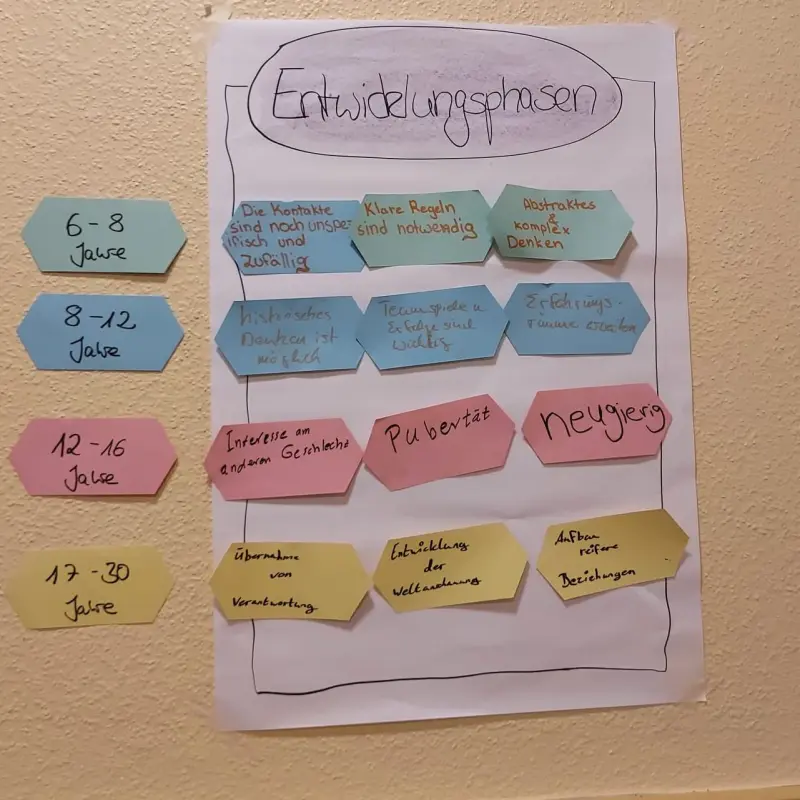 Entwickelungsphasen
6-8
Jahre
Die Kontakte
sind noch unspez
ifisch und
zufällig
Klare Regeln
sind notwendig
Abstraktes
&
komplex
Denken
8-12
Jahre
historisches
Denken ist
möglich
Teamspiele u
Erfolge sind
wichtig
Erfahrungs-
räume
12-16
Jahre
Interesse am
anderen Geschlecht
Pubertät
neugierig
17-30
Jahre
Übernahme
von
Verantwortung
Entwicklung
der
Weltanschauung
Aufbau
reifere
Beziehungen